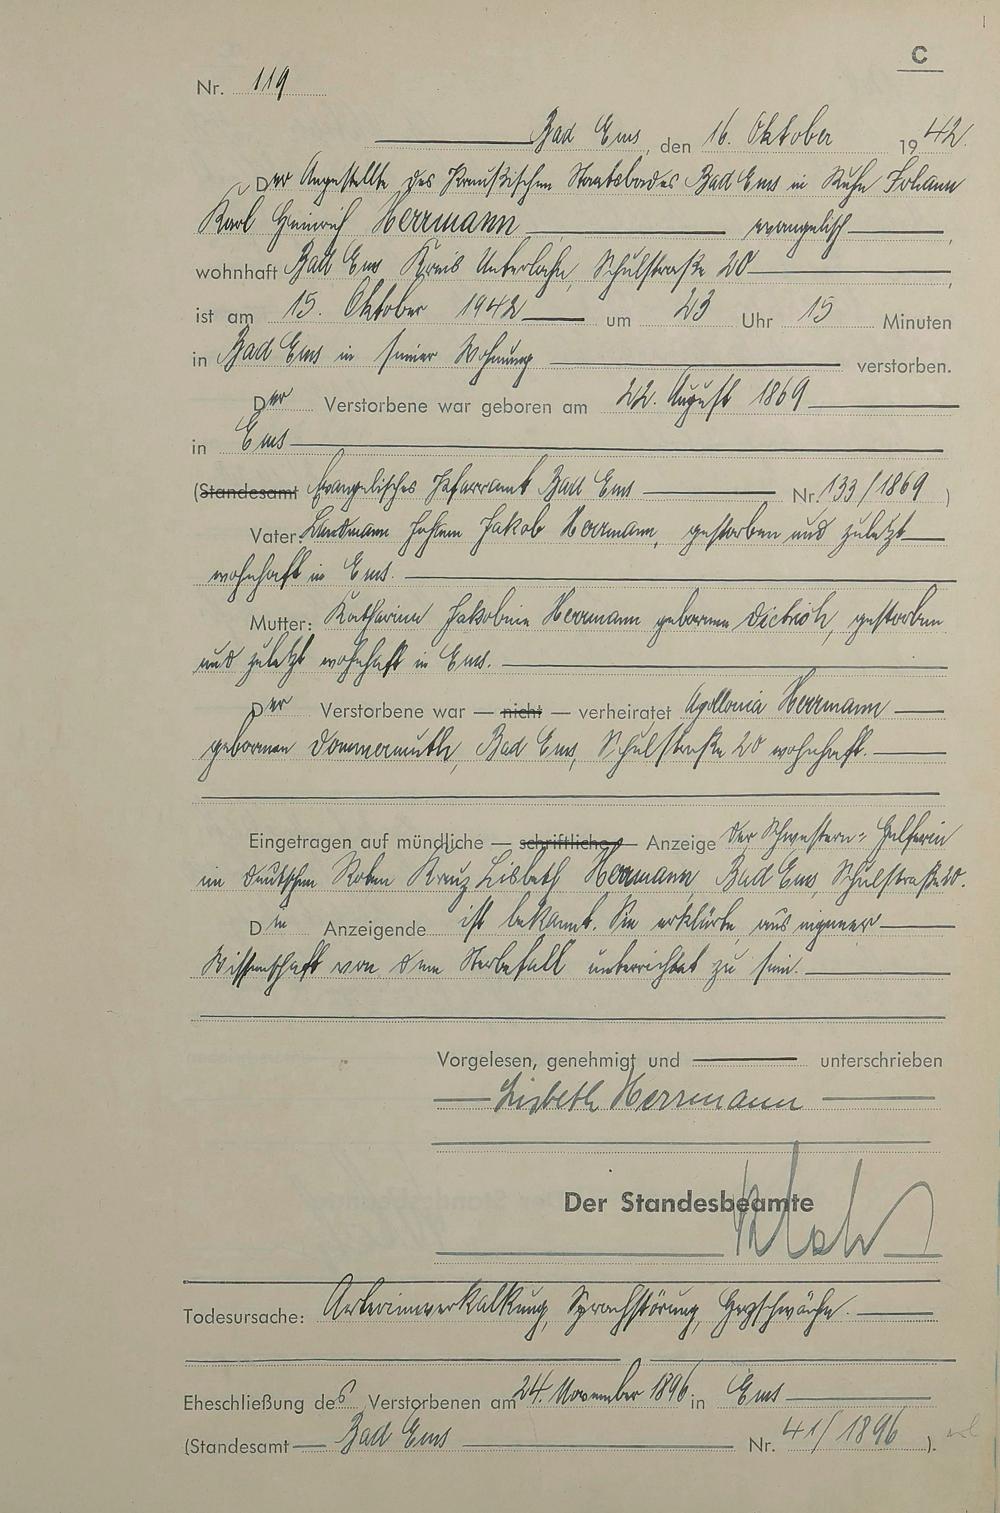 C
Nr. 119
Bad Ems, den 16. Oktober 1942.
Der Angestellte des Preußischen Staatsbades Bad Ems in Ruhe Johann
Karl Heinrich Herrmann evangelisch,
wohnhaft Bad Ems Kreis Unterlahn, Schulstraße 20,
ist am 15. Oktober 1942 um 23 Uhr 15 Minuten
in Bad Ems in seiner Wohnung verstorben.
Der Verstorbene war geboren am 22. August 1869
in Ems
(Standesamt Evangelisches Pfarramt Bad Ems Nr. 133/1869)
Vater: Landmann Johann Jakob Herrmann, gestorben und zuletzt
wohnhaft in Ems.
Mutter: Katharina Jakobine Herrmann geborene Dietrich, gestorben
und zuletzt wohnhaft in Ems.
Der Verstorbene war — nicht — verheiratet Apollonia Herrmann
geborenen Dommermuth, Bad Ems, Schulstraße 20 wohnhaft.
Eingetragen auf mündliche — schriftliche — Anzeige der Schwestern-Helferin
im Deutschen Roten Kreuz Lisbeth Herrmann Bad Ems, Schulstraße 20.
Die Anzeigende ist bekannt. Sie erklärte, aus eigener
Wissenschaft von dem Sterbefall unterrichtet zu sein.
Vorgelesen, genehmigt und unterschrieben
Lisbeth Herrmann
Der Standesbeamte
Todesursache: Arterienverkalkung, Sprachstörung, Herzschwäche.
Eheschließung des Verstorbenen am 24. November 1896 in Ems
(Standesamt Bad Ems Nr. 41/1896).